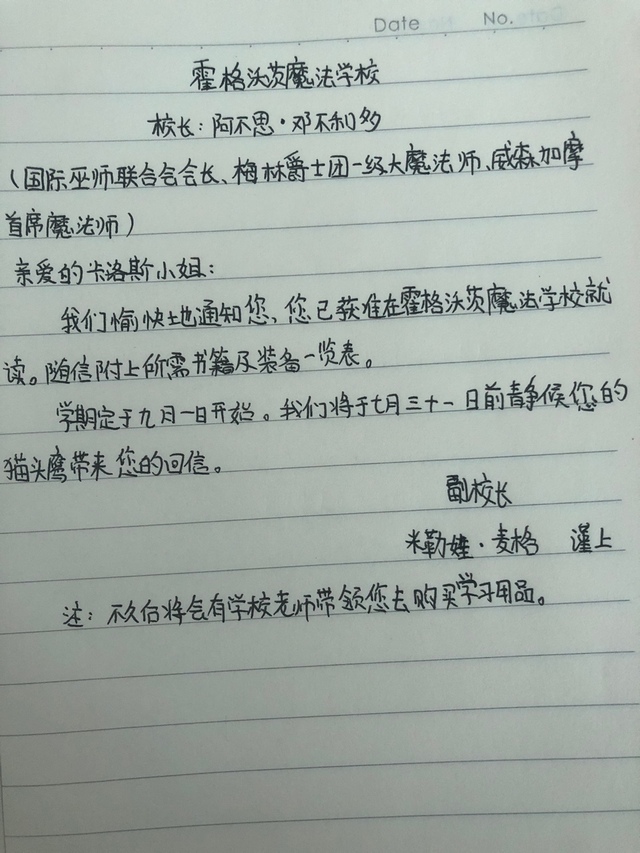 Date No.
霍格沃茨魔法学校
校长：阿不思·邓不利多
（国际巫师联合会会长、梅林爵士团一级大魔法师、威森加摩
首席魔法师）
亲爱的卡洛斯小姐：
我们愉快地通知您，您已获准在霍格沃茨魔法学校就
读。随信附上所需书籍及装备一览表。
学期定于九月一日开始。我们将于七月三十一日前静候您的
猫头鹰带来您的回信。
副校长
米勒娃·麦格 谨上
注：不久后将会有学校老师带领您去购买学习用品。